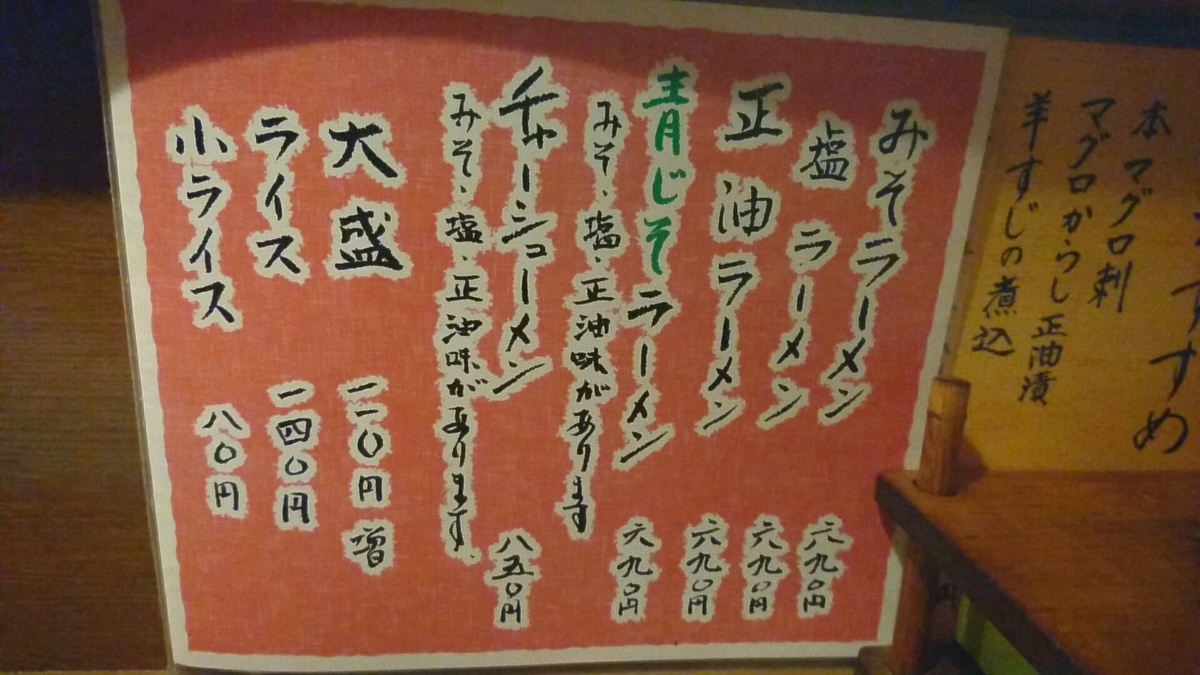 すめ
本マグロ刺
マグロからし正油漬
羊すじの煮込
みそラーメン 六九〇円
塩ラーメン 六九〇円
正油ラーメン 六九〇円
青じそラーメン 六九〇円
みそ、塩、正油味があります
チャーシューメン 八五〇円
みそ、塩、正油味があります。
大盛 一一〇円増
ライス 一四〇円
小ライス 八〇円